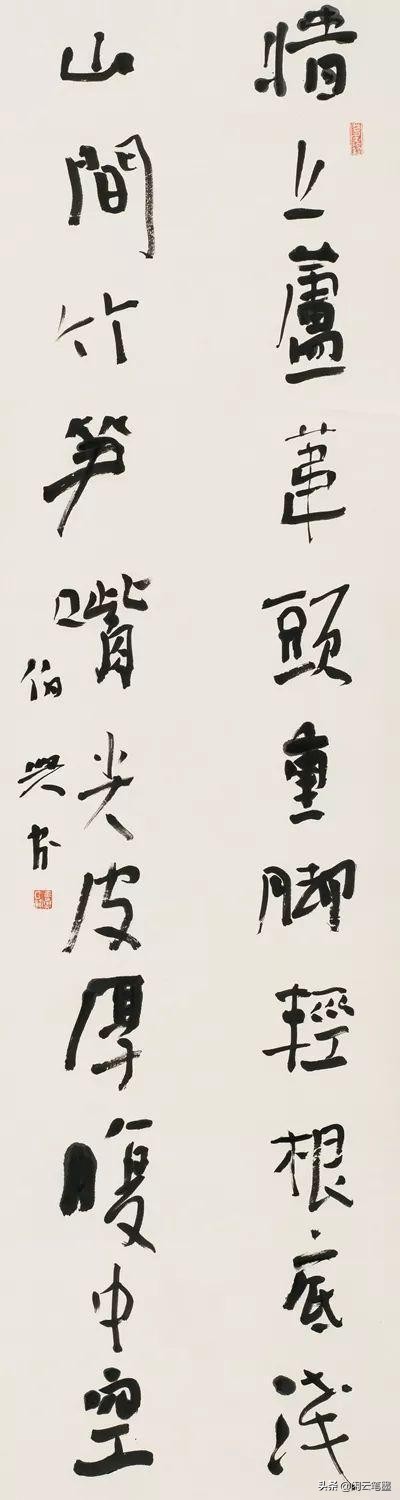 牆上蘆葦頭重脚輕根底淺
山間竹笋嘴尖皮厚腹中空
伯興
头条 @闲云笔墨